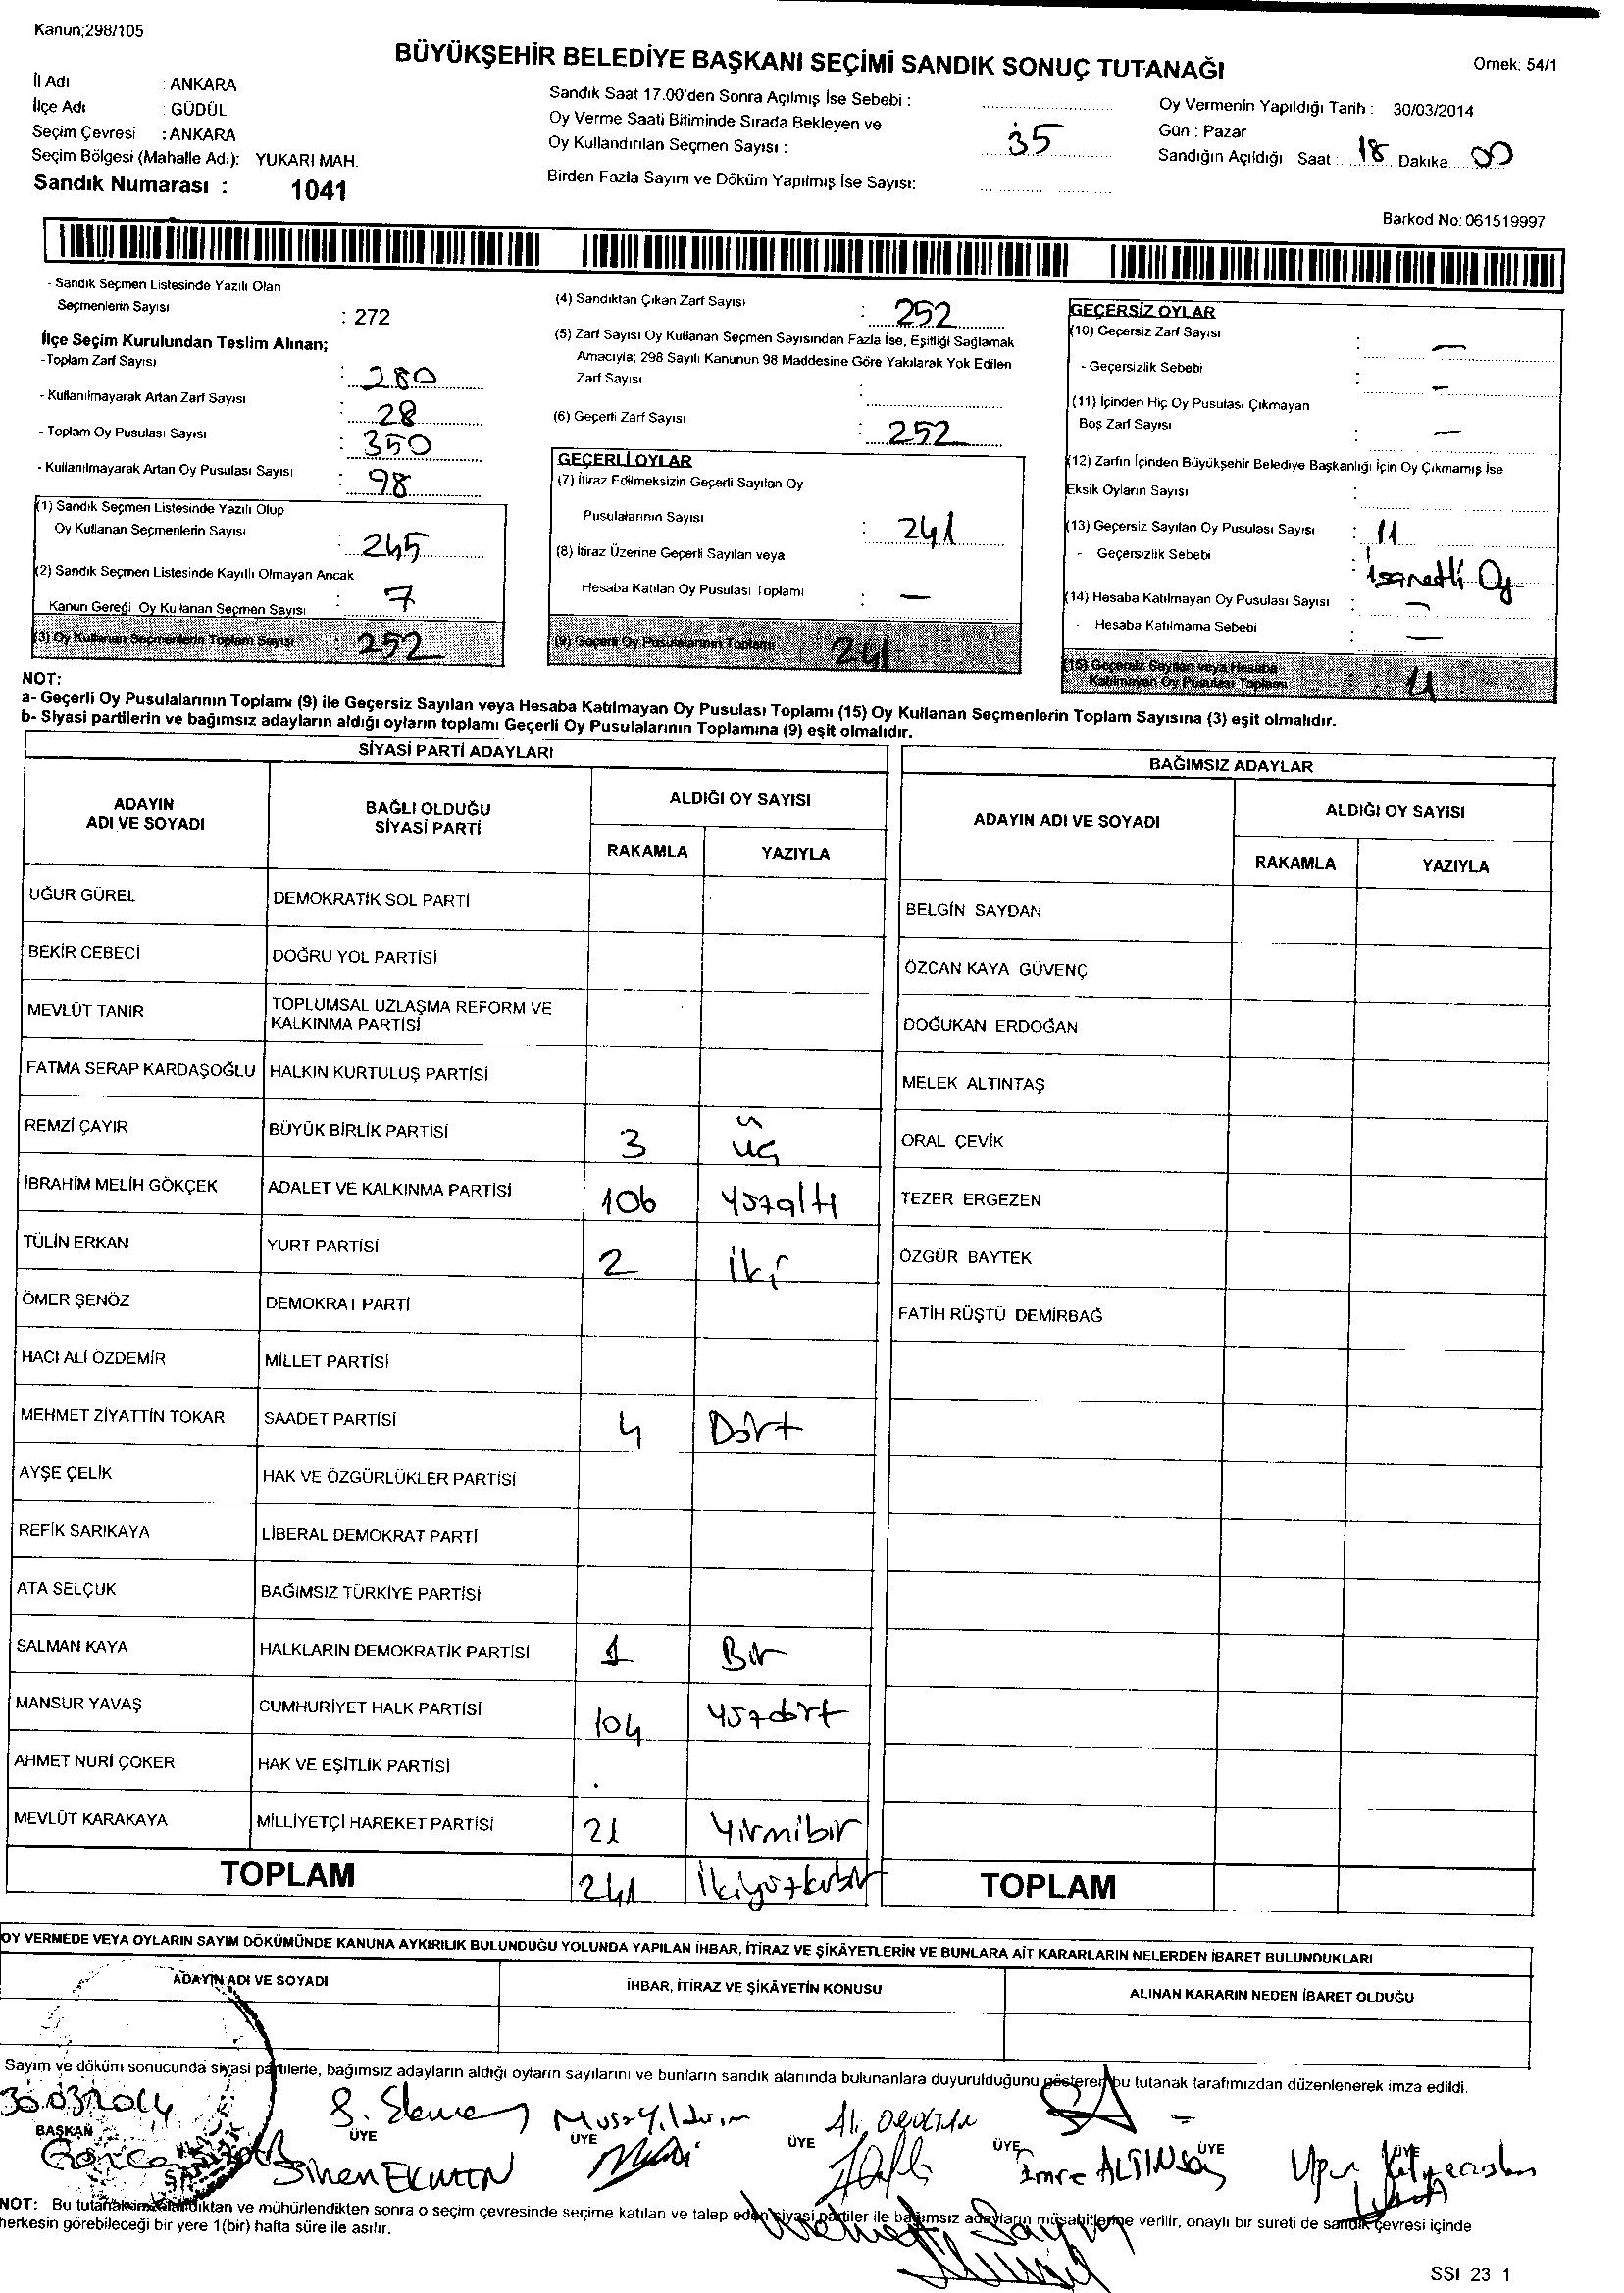 Kanun;298/105
BÜYÜKŞEHİR BELEDİYE BAŞKANI SEÇİMİ SANDIK SONUÇ TUTANAĞI
Örnek: 54/1
İl Adı : ANKARA
İlçe Adı : GÜDÜL
Seçim Çevresi : ANKARA
Seçim Bölgesi (Mahalle Adı): YUKARI MAH.
Sandık Numarası : 1041
Sandık Saat 17.00'den Sonra Açılmış İse Sebebi :
Oy Verme Saati Bitiminde Sırada Bekleyen ve
Oy Kullandırılan Seçmen Sayısı : 35
Birden Fazla Sayım ve Döküm Yapılmış İse Sayısı:
Oy Vermenin Yapıldığı Tarih : 30/03/2014
Gün : Pazar
Sandığın Açıldığı Saat : 18 Dakika 00
Barkod No: 061519997
- Sandık Seçmen Listesinde Yazılı Olan
Seçmenlerin Sayısı : 272
İlçe Seçim Kurulundan Teslim Alınan;
-Toplam Zarf Sayısı : 280
- Kullanılmayarak Artan Zarf Sayısı : 28
- Toplam Oy Pusulası Sayısı : 350
- Kullanılmayarak Artan Oy Pusulası Sayısı : 98
(1) Sandık Seçmen Listesinde Yazılı Olup
Oy Kullanan Seçmenlerin Sayısı : 245
(2) Sandık Seçmen Listesinde Kayıtlı Olmayan Ancak
Kanun Gereği Oy Kullanan Seçmen Sayısı : 7
(3) Oy Kullanan Seçmenlerin Toplam Sayısı : 252
(4) Sandıktan Çıkan Zarf Sayısı : 252
(5) Zarf Sayısı Oy Kullanan Seçmen Sayısından Fazla İse, Eşitliği Sağlamak
Amacıyla; 298 Sayılı Kanunun 98 Maddesine Göre Yakılarak Yok Edilen
Zarf Sayısı :
(6) Geçerli Zarf Sayısı : 252
GEÇERLİ OYLAR
(7) İtiraz Edilmeksizin Geçerli Sayılan Oy
Pusulalarının Sayısı : 241
(8) İtiraz Üzerine Geçerli Sayılan veya
Hesaba Katılan Oy Pusulası Toplamı : —
(9) Geçerli Oy Pusulalarının Toplamı 241
GEÇERSİZ OYLAR
(10) Geçersiz Zarf Sayısı : —
- Geçersizlik Sebebi : —
(11) İçinden Hiç Oy Pusulası Çıkmayan
Boş Zarf Sayısı : —
(12) Zarfın İçinden Büyükşehir Belediye Başkanlığı İçin Oy Çıkmamış İse
Eksik Oyların Sayısı :
(13) Geçersiz Sayılan Oy Pusulası Sayısı : 11
- Geçersizlik Sebebi : İşaretli Oy
(14) Hesaba Katılmayan Oy Pusulası Sayısı : —
- Hesaba Katılmama Sebebi : —
(15) Geçersiz Sayılan veya Hesaba
Katılmayan Oy Pusulası Toplamı 11
NOT:
a- Geçerli Oy Pusulalarının Toplamı (9) ile Geçersiz Sayılan veya Hesaba Katılmayan Oy Pusulası Toplamı (15) Oy Kullanan Seçmenlerin Toplam Sayısına (3) eşit olmalıdır.
b- Siyasi partilerin ve bağımsız adayların aldığı oyların toplamı Geçerli Oy Pusulalarının Toplamına (9) eşit olmalıdır.
SİYASİ PARTİ ADAYLARI
ADAYIN ADI VE SOYADI BAĞLI OLDUĞU SİYASİ PARTİ ALDIĞI OY SAYISI RAKAMLA YAZIYLA
UĞUR GÜREL DEMOKRATİK SOL PARTİ
BEKİR CEBECİ DOĞRU YOL PARTİSİ
MEVLÜT TANIR TOPLUMSAL UZLAŞMA REFORM VE KALKINMA PARTİSİ
FATMA SERAP KARDAŞOĞLU HALKIN KURTULUŞ PARTİSİ
REMZİ ÇAYIR BÜYÜK BİRLİK PARTİSİ 3 üç
İBRAHİM MELİH GÖKÇEK ADALET VE KALKINMA PARTİSİ 106 yüzaltı
TÜLİN ERKAN YURT PARTİSİ 2 iki
ÖMER ŞENÖZ DEMOKRAT PARTİ
HACI ALİ ÖZDEMİR MİLLET PARTİSİ
MEHMET ZİYATTİN TOKAR SAADET PARTİSİ 4 Dört
AYŞE ÇELİK HAK VE ÖZGÜRLÜKLER PARTİSİ
REFİK SARIKAYA LİBERAL DEMOKRAT PARTİ
ATA SELÇUK BAĞIMSIZ TÜRKİYE PARTİSİ
SALMAN KAYA HALKLARIN DEMOKRATİK PARTİSİ 1 Bir
MANSUR YAVAŞ CUMHURİYET HALK PARTİSİ 104 yüzdört
AHMET NURİ ÇOKER HAK VE EŞİTLİK PARTİSİ
MEVLÜT KARAKAYA MİLLİYETÇİ HAREKET PARTİSİ 21 Yirmibir
TOPLAM 241 İkiyüzkırkbir
BAĞIMSIZ ADAYLAR
ADAYIN ADI VE SOYADI ALDIĞI OY SAYISI RAKAMLA YAZIYLA
BELGİN SAYDAN
ÖZCAN KAYA GÜVENÇ
DOĞUKAN ERDOĞAN
MELEK ALTINTAŞ
ORAL ÇEVİK
TEZER ERGEZEN
ÖZGÜR BAYTEK
FATİH RÜŞTÜ DEMİRBAĞ
TOPLAM
OY VERMEDE VEYA OYLARIN SAYIM DÖKÜMÜNDE KANUNA AYKIRILIK BULUNDUĞU YOLUNDA YAPILAN İHBAR, İTİRAZ VE ŞİKÂYETLERİN VE BUNLARA AİT KARARLARIN NELERDEN İBARET BULUNDUKLARI
ADAYIN ADI VE SOYADI İHBAR, İTİRAZ VE ŞİKÂYETİN KONUSU ALINAN KARARIN NEDEN İBARET OLDUĞU
Sayım ve döküm sonucunda siyasi partilerle, bağımsız adayların aldığı oyların sayılarını ve bunların sandık alanında bulunanlara duyurulduğunu gösteren bu tutanak tarafımızdan düzenlenerek imza edildi.
30.03.2014
BAŞKAN ÜYE ÜYE ÜYE ÜYE ÜYE ÜYE
Sinan EKMEN
NOT: Bu tutanak imzalandıktan ve mühürlendikten sonra o seçim çevresinde seçime katılan ve talep eden siyasi partiler ile bağımsız adayların müşahitlerine verilir, onaylı bir sureti de sandık çevresi içinde
herkesin görebileceği bir yere 1(bir) hafta süre ile asılır.
SSI 23 1